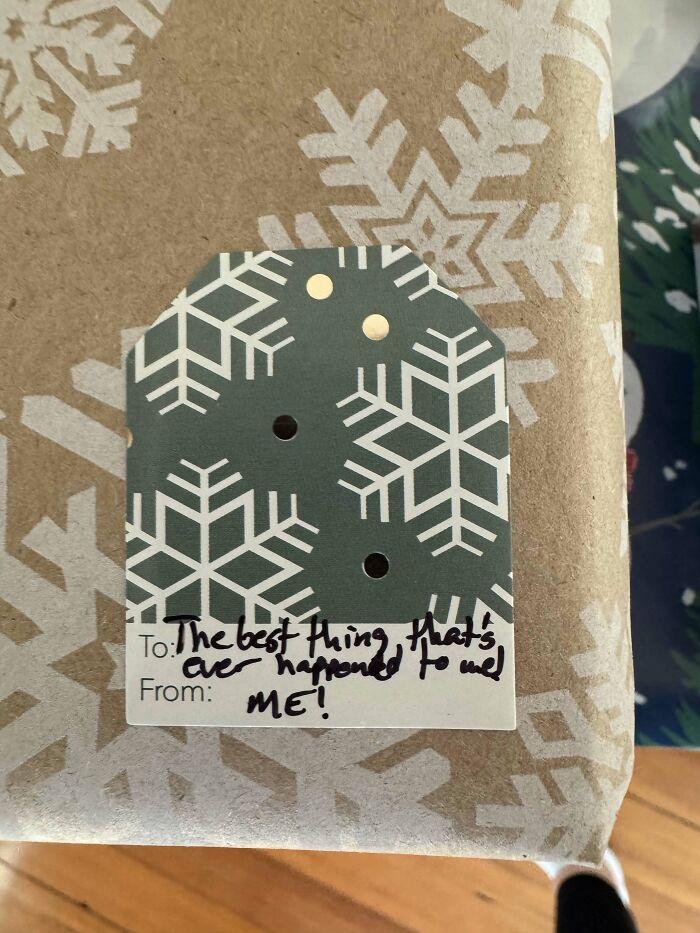 To: The best thing that's
ever happened to me!
From:
ME!